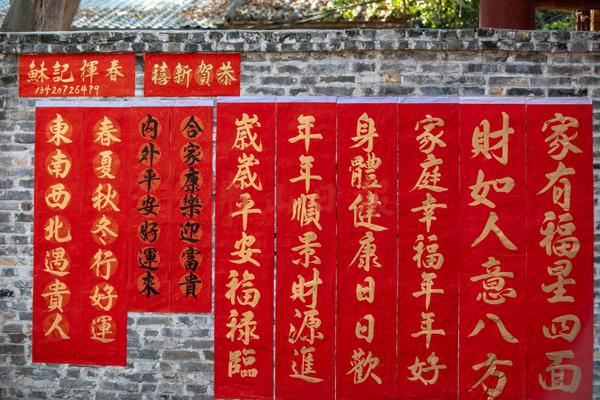 穌記揮春
13420726479
恭賀新禧
家有福星四面
財如人意八方
家庭幸福年年好
身體健康日日歡
年年順景財源進
嵗嵗平安福禄臨
合家康樂迎富貴
内外平安好運來
春夏秋冬行好運
東南西北遇貴人